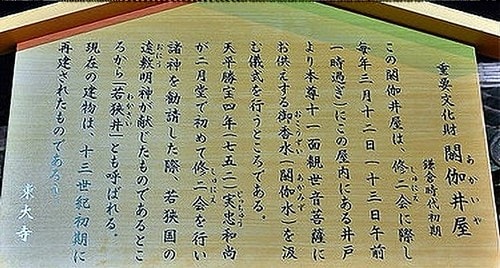 重要文化財 閼伽井屋
あかいや
鎌倉時代初期
この閼伽井屋は、修二会に際し
しゅにえ
毎年三月十二日(十三日午前
一時過ぎ)にこの屋内にある井戸
より本尊十一面観世音菩薩に
お供えする御香水(閼伽水)を汲
おこうずい
あかみず
む儀式を行うところである。
天平勝宝四年(七五二)実忠和尚
じっちゅう
が二月堂で初めて修二会を行い
しゅにえ
諸神を勧請した際、若狭国の
遠敷明神が献じたものであるとこ
おにゅう
ろから「若狭井」とも呼ばれる。
わかさい
現在の建物は、十三世紀初期に
再建されたものである。
東大寺